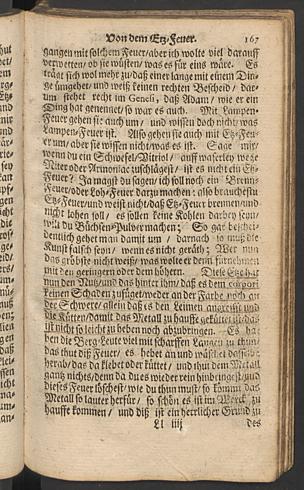 Von dem Etz-Feuer. 167
gangen mit solchem Feuer/ aber ich wolte viel darauff
verwetten/ ob sie wüsten/ was es für eins wäre. Es
trägt sich wol mehr zu/ daß einer lange mit einem Din-
ge umgehet/ und weiß keinen rechten Bescheid/ dar-
um stehet recht im Genesi, daß Adam/ wie er ein
Ding hat genennet/ so war es auch. Mit Lampen-
Feuer gehen sie auch um/ und wissen doch nicht/ was
Lampen-Feuer ist. Also gehen sie auch mit Etz-Feu-
er um/ aber sie wissen nicht/ was es ist. Sage mir/
wenn du ein Schwefel/ Vitriol/ auff waserley wege
Niter oder Armoniac zuschlägest/ ist es nicht ein Etz-
Feuer? Ja magst du sagen/ ich soll noch ein Brenn-
Feuer/ oder Loh-Feuer darzu machen: also brauchstu
Etz-Feuer/ und weist nicht/ daß Etz-Feuer brennen/ und
nicht lohen soll/ es sollen keine Kohlen darbey seyn/
wilu du Büchsen-Pulver machen; So gar beschei-
dentlich gehet man damit um/ darnach so muß die
Kunst falsch seyn/ wenn es nicht geräth; Wer nun
das gröbste nicht weiß/ was wolte er denn fürnehmen
mit den geringern oder dem höhern. Diese Etze hat
nun den Nutz/ und das hinter ihm/ daß es dem corpori
keinen Schaden zufüget/ weder an der Farbe noch an
der Schwere/ allein daß es den Leimen angreifft und
die Kütten/ damit das Metall zu hauffe geküttet ist/ das
ist nicht so leicht zu heben noch abzubringen. Es ha-
ben die Berg-Leute viel mit scharffen Laugen zu thun/
das thut diß Feuer/ es hebet an und wäschet dasselbe
herab/ das da klebet oder küttet/ und thut dem Metall
gantz nichts/ denn da du es wieder rein hinbringest/ und
dieses Feuer löschest/ wie du thun must/ so kommt das
Metall so lauter herfür/ so schön es ist im Werck zu
hauffe kommen/ und diß ist ein herrlicher Grund zu
Ll iiij des